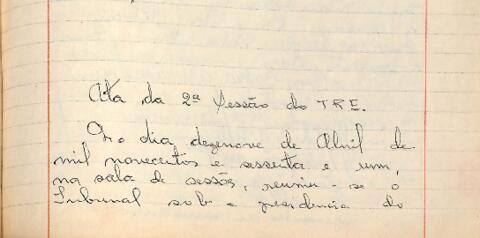 Ata da 2ª Sessão do TRE.
No dia dezenove de Abril de
mil novecentos e sessenta e um,
na sala de sessões, reuniu-se o
Tribunal sob a presidencia do